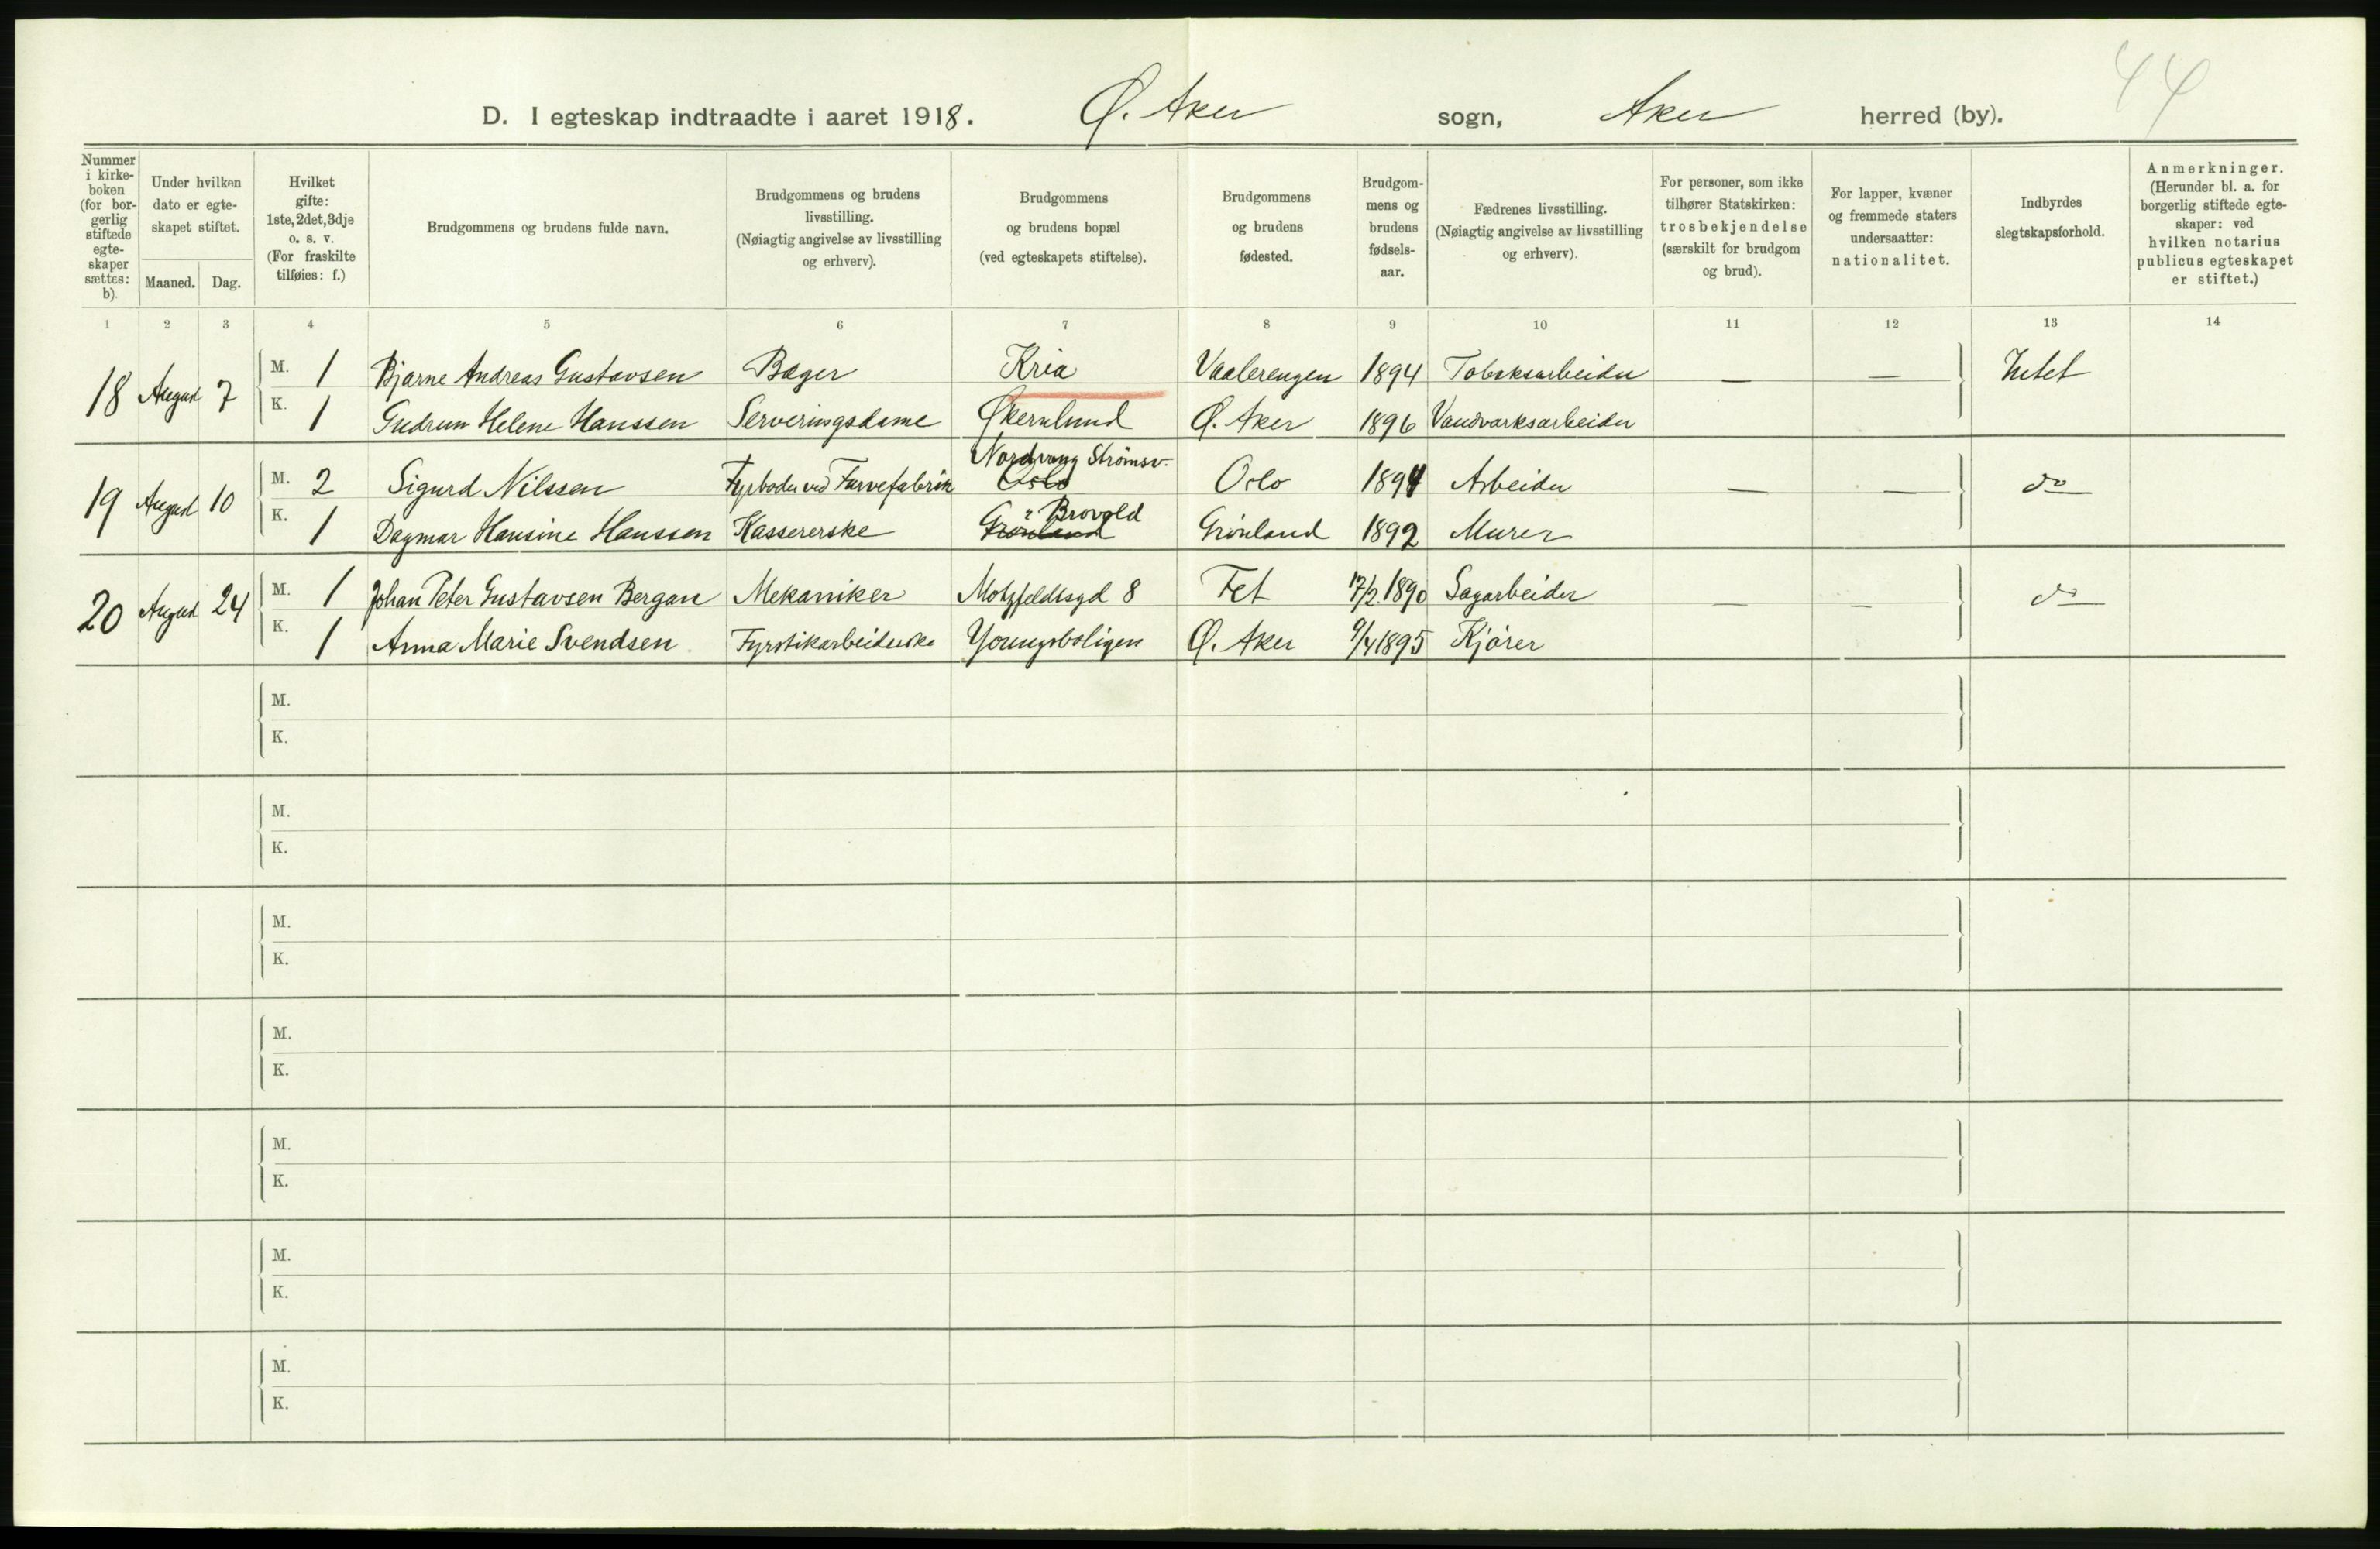 44
D. I egteskap indtraadte i aaret 1918. Ø. Aker sogn, Aker herred (by).
Nummer i kirke-boken (for bor-gerlig stiftede egte-skaper sættes: b).
Under hvilken dato er egte-skapet stiftet.
Maaned. Dag.
Hvilket gifte: 1ste, 2det, 3dje o. s. v. (For fraskilte tilføies: f.)
Brudgommens og brudens fulde navn.
Brudgommens og brudens livsstilling. (Nøiagtig angivelse av livsstilling og erhverv).
Brudgommens og brudens bopæl (ved egteskapets stiftelse).
Brudgommens og brudens fødested.
Brudgom-mens og brudens fødsels-aar.
Fædrenes livsstilling. (Nøiagtig angivelse av livsstilling og erhverv).
For personer, som ikke tilhører Statskirken: trosbekjendelse (særskilt for brudgom og brud).
For lapper, kvæner og fremmede staters undersaatter: nationalitet.
Indbyrdes slegtskapsforhold.
Anmerkninger. (Herunder bl. a. for borgerlig stiftede egte-skaper: ved hvilken notarius publicus egteskapet er stiftet.)
1 2 3 4 5 6 7 8 9 10 11 12 13 14
18 August 7 M. 1 Bjarne Andreas Gustavsen Bager Kria Vaalerengen 1894 Tobaksarbeider — — Intet
K. 1 Gudrun Helene Hanssen Serveringsdame Økernlund Ø. Aker 1896 Vandværksarbeider
Nordvang Strømsv.
19 August 10 M. 2 Sigurd Nilssen Fyrbøder ved Farvefabrik Oslo Oslo 1894 Arbeider — — do
" Brovold
K. 1 Dagmar Hansine Hanssen Kassererske Grønland Grønland 1892 Murer
20 August 24 M. 1 Johan Peter Gustavsen Bergan Mekaniker Motzfeldtsgd 8 Fet 17/2 1890 Sagarbeider — — do
K. 1 Anna Marie Svendsen Fyrstikarbeiderske Youngsboligen Ø. Aker 9/4 1895 Kjører
M.
K.
M.
K.
M.
K.
M.
K.
M.
K.
M.
K.
M.
K.